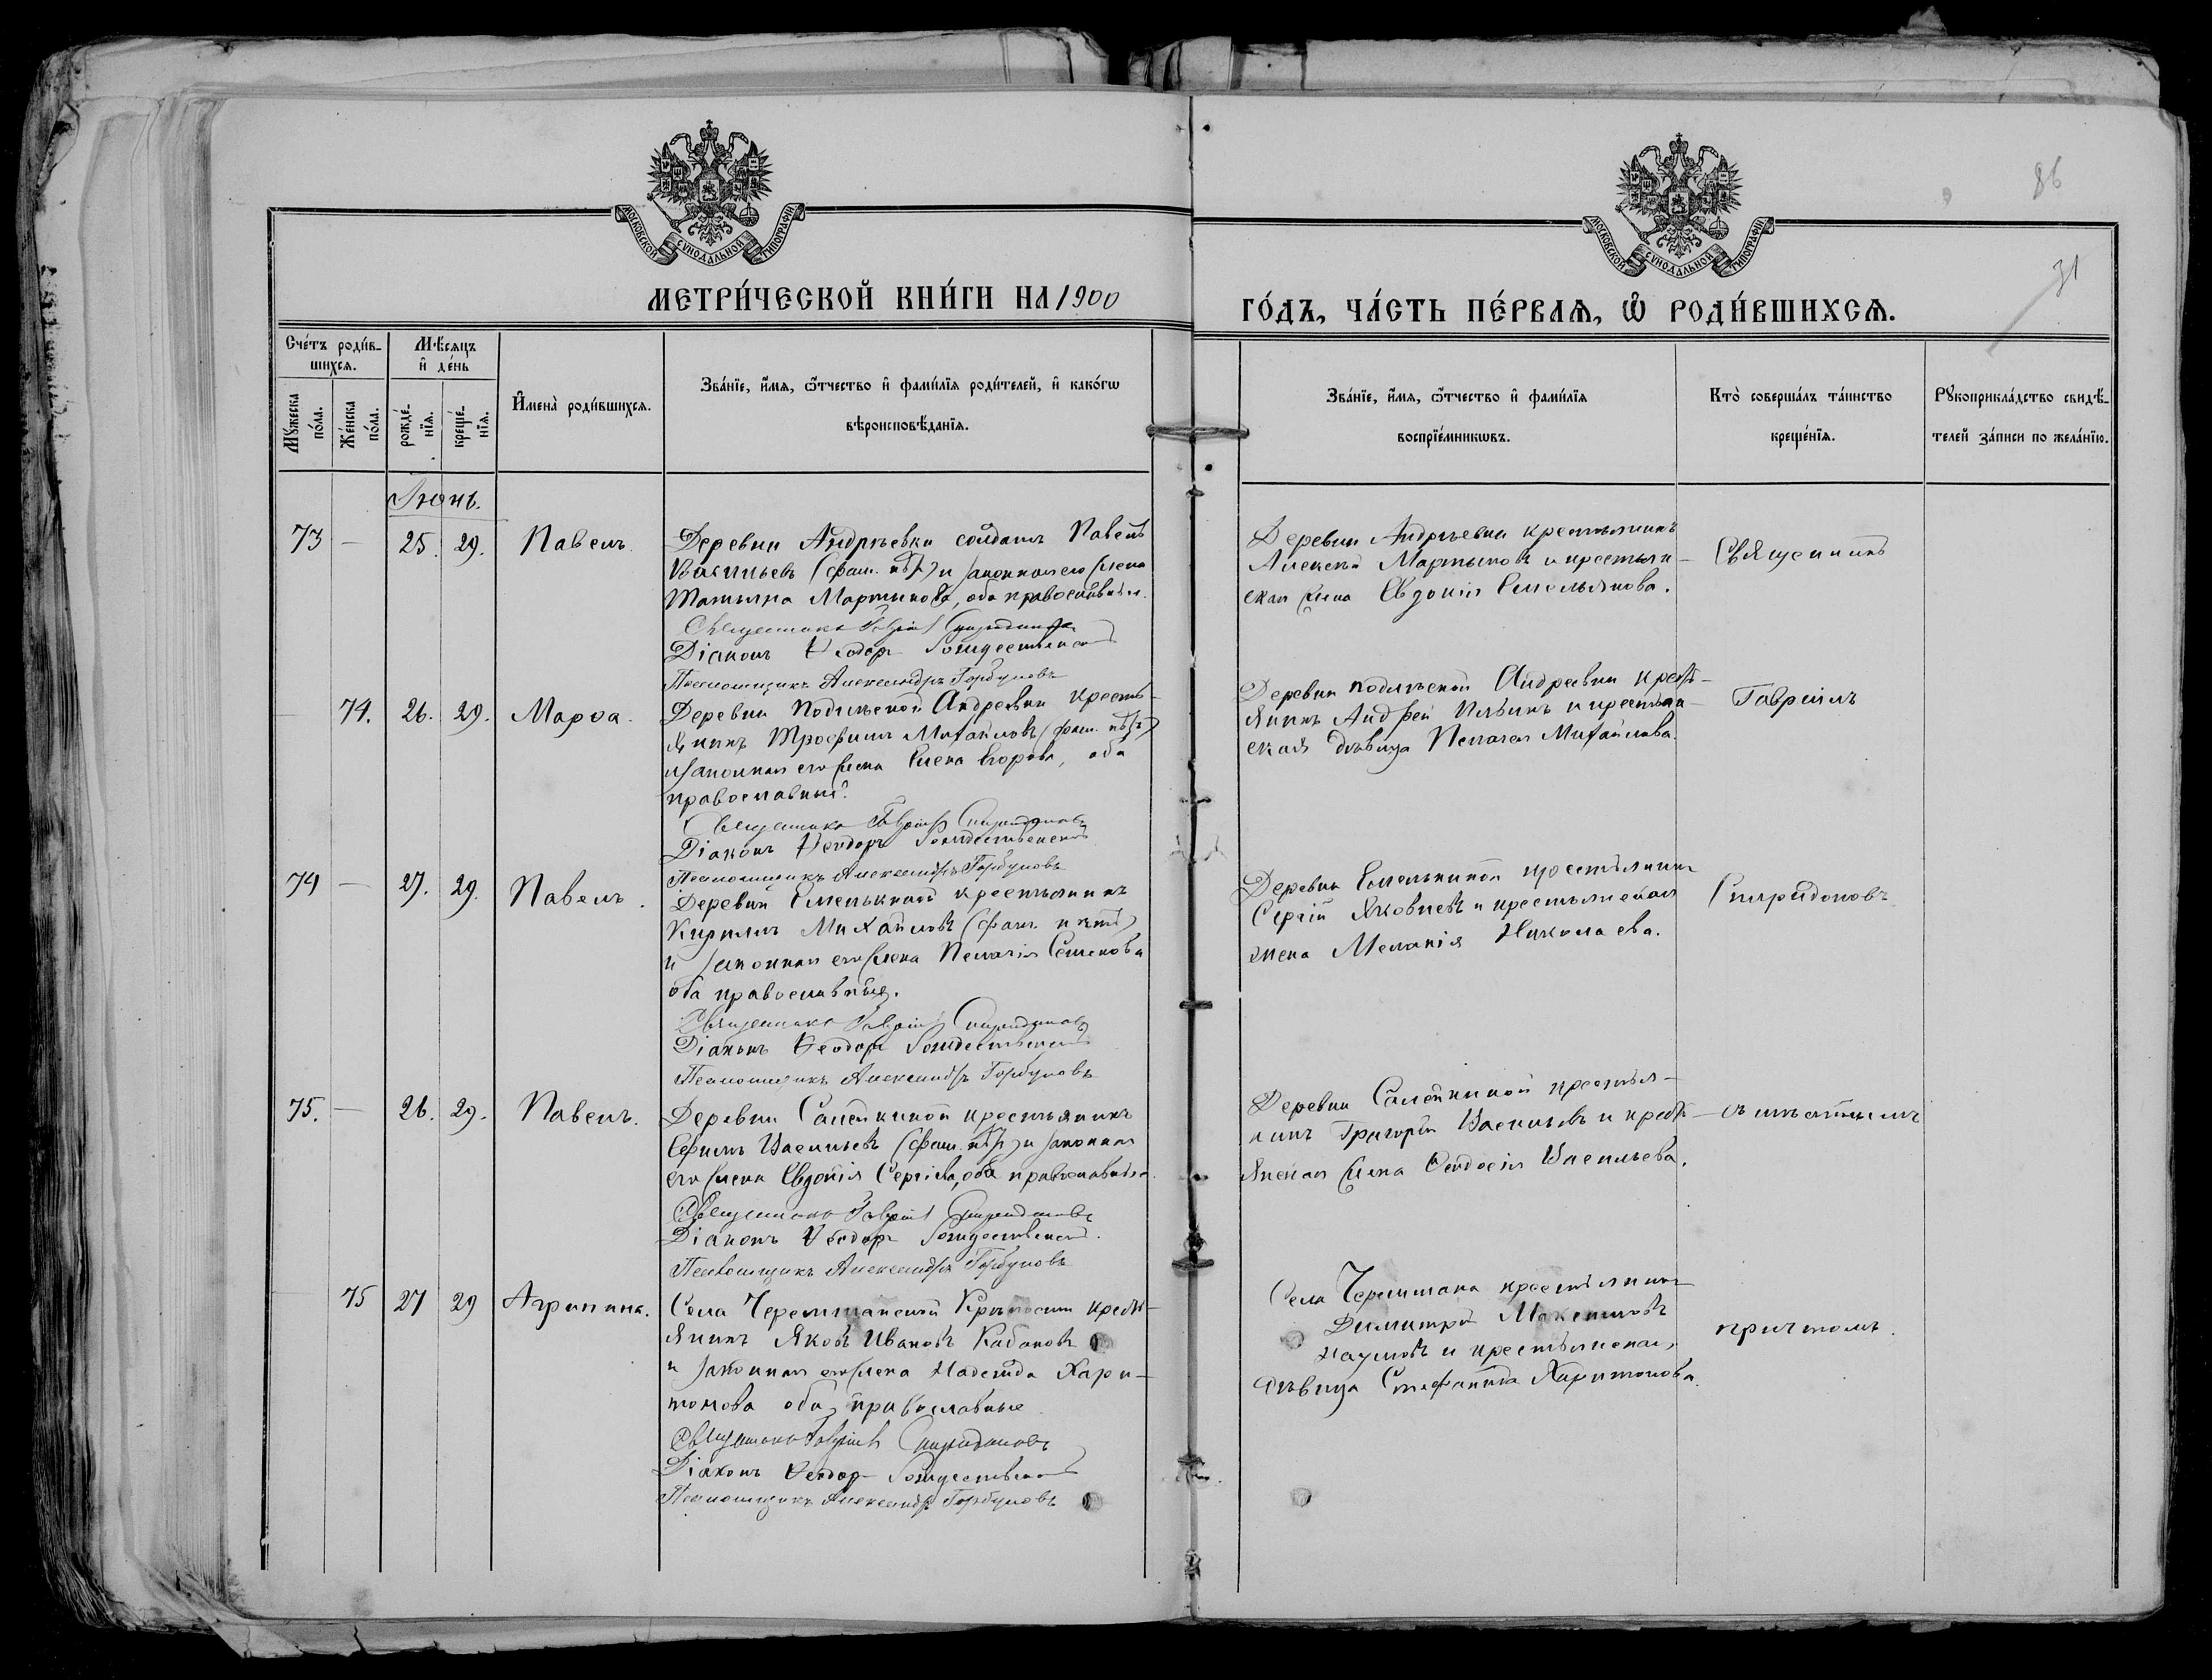 86
31
МОСКОВСКОЙ СѴНОДАЛЬНОЙ ТИПОГРАФІИ
МОСКОВСКОЙ СѴНОДАЛЬНОЙ ТИПОГРАФІИ
МЕТРИ́ЧЕСКОЙ КНИ́ГИ НА 1900
ГО́ДЪ, ЧА́СТЬ ПЕ́РВАѦ, Ѽ РОДИ́ВШИХСѦ.
Сче́тъ роди́в-
шихсѧ.
Мѣ́сѧцъ
и҆ де́нь
Мꙋ́жеска по́ла.
Же́нска по́ла.
рожде́-нїѧ.
креще́-нїѧ.
И҆мена̀ роди́вшихсѧ.
Зва́нїе, и҆́мѧ, ѻ҆́тчество и҆ фами́лїѧ роди́телей, и҆ како́гѡ
вѣроисповѣ́данїѧ.
Зва́нїе, и҆́мѧ, ѻ҆́тчество и҆ фами́лїѧ
воспрїе́мникѡвъ.
Кто̀ соверша́лъ та́инство
креще́нїѧ.
Рꙋкоприкла́дство свидѣ́-
телей за́писи по жела́нїю.
Іюнь.
73 — 25. 29. Павелъ.
Деревни Андреевки солдатъ Павелъ
Васильевъ (фам. нѣтъ) и законная его жена
Татьяна Мартынова, оба православные.
Священникъ Гавріилъ Спиридоновъ
Діаконъ Ѳеодоръ Рождественскій
Псаломщикъ Александръ Горбуновъ
Деревни Андреевки крестьянинъ
Алексѣй Мартыновъ и крестьян-
ская жена Евдокія Емельянова.
Священникъ
— 74. 26. 29. Марѳа.
Деревни Подлѣсной Андреевки кресть-
янинъ Трофимъ Михайловъ (фам. нѣтъ)
и законная его жена Елена Егорова, оба
православные.
Священникъ Гавріилъ Спиридоновъ
Діаконъ Ѳеодоръ Рождественскій
Псаломщикъ Александръ Горбуновъ
Деревни Подлѣсной Андреевки кресть-
янинъ Андрей Ильинъ и крестьян-
ская дѣвица Пелагея Михайлова.
Гавріилъ
74 — 27. 29. Павелъ.
Деревни Емелькиной крестьянинъ
Кириллъ Михайловъ (фам. нѣтъ)
и законная его жена Пелагія Семенова
оба православные.
Священникъ Гавріилъ Спиридоновъ
Діаконъ Ѳеодоръ Рождественскій
Псаломщикъ Александръ Горбуновъ
Деревни Емелькиной крестьянинъ
Сергій Яковлевъ и крестьянская
жена Меланія Николаева.
Спиридоновъ
75. — 26. 29. Павелъ.
Деревни Салейкиной крестьянинъ
Ефимъ Васильевъ (фам. нѣтъ) и законная
его жена Евдокія Сергіева, оба православные.
Священникъ Гавріилъ Спиридоновъ
Діаконъ Ѳеодоръ Рождественскій.
Псаломщикъ Александръ Горбуновъ
Деревни Салейкиной крестья-
нинъ Григорій Васильевъ и кресть-
янская жена Ѳеодосія Васильева.
съ мѣстнымъ
75 27 29 Агрипина.
Села Черемшанской Крѣпости кресть-
янинъ Яковъ Ивановъ Кабановъ
и законная его жена Надежда Хари-
тонова оба православные
Священникъ Гавріилъ Спиридоновъ
Діаконъ Ѳеодоръ Рождественскій
Псаломщикъ Александръ Горбуновъ
Села Черемшана крестьянинъ
Димитрій
Наумовъ и крестьянская
дѣвица Стефанида Харитонова.
причтомъ.